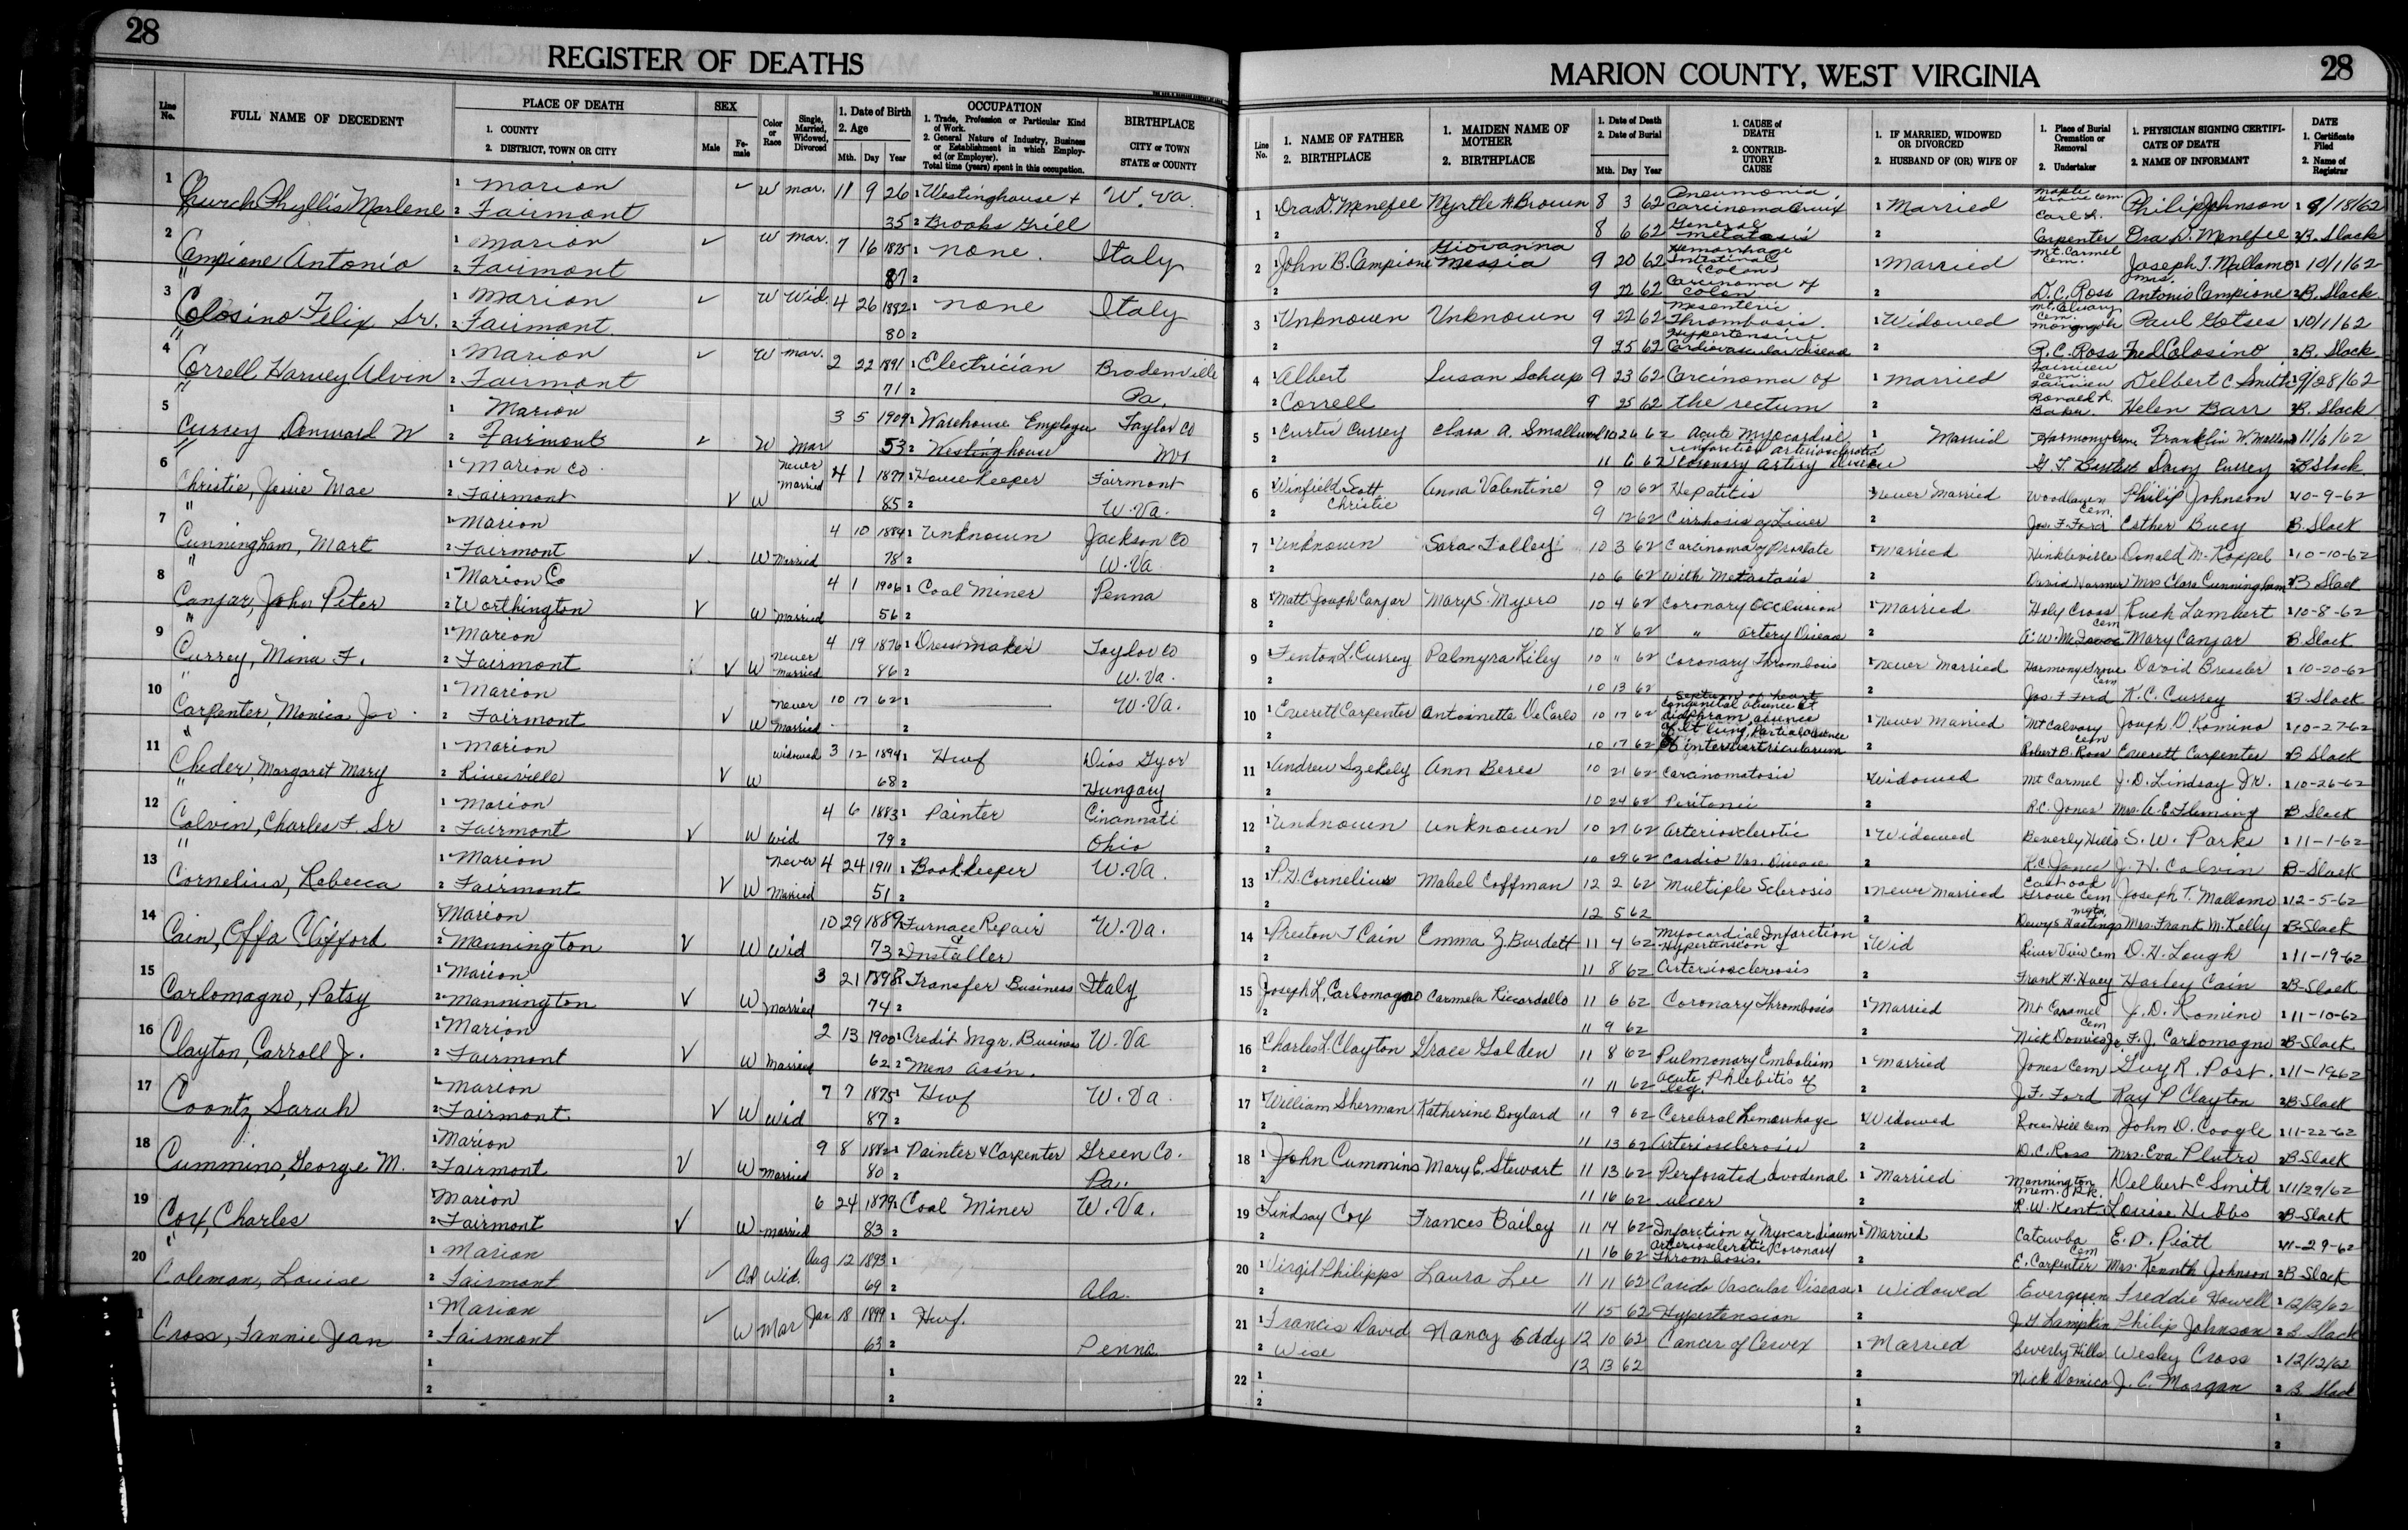 28
REGISTER OF DEATHS
Line No.
FULL NAME OF DECEDENT
PLACE OF DEATH
1. COUNTY
2. DISTRICT, TOWN OR CITY
SEX
Male
Female
Color or Race
Single, Married, Widowed, Divorced
1. Date of Birth
2. Age
Mth. Day Year
OCCUPATION
1. Trade, Profession or Particular Kind of Work.
2. General Nature of Industry, Business or Establishment in which Employed (or Employer).
Total time (years) spent in this occupation.
BIRTHPLACE
CITY or TOWN
STATE or COUNTY
1 Church Phyllis Marlene 1 Marion ✓ W mar. 11 9 26 1 Westinghouse + W. Va.
2 Fairmont 35 2 Brooks Grill
2 Campione Antonio 1 Marion ✓ W mar. 7 16 1875 1 none. Italy
" 2 Fairmont 87 2
3 Colosino Felix Sr. 1 Marion ✓ W Wid. 4 26 1882 1 none Italy
" 2 Fairmont 80 2
4 Correll Harvey Alvin 1 Marion ✓ W mar. 2 22 1891 1 Electrician Bradenville
" 2 Fairmont 71 2 Pa.
5 Currey Denward W 1 Marion 3 5 1909 1 Warehouse Employee Taylor Co
" 2 Fairmont ✓ W Mar 53 2 Westinghouse
6 Christie, Jessie Mae 1 Marion Co. never married 4 1 1877 1 Housekeeper Fairmont
" 2 Fairmont ✓ W 85 2 W. Va.
7 Cunningham, Mart 1 Marion 4 10 1884 1 Unknown Jackson Co
" 2 Fairmont ✓ W Married 78 2 W. Va
8 Canjar, John Peter 1 Marion Co 4 1 1906 1 Coal Miner Penna
" 2 Worthington ✓ W Married 56 2
9 Currey, Mina F. 1 Marion 4 19 1876 1 Dressmaker Taylor Co
" 2 Fairmont ✓ W never married 86 2 W. Va.
10 Carpenter, Monica 1 Marion 10 17 62 1 W. Va.
" 2 Fairmont ✓ W never married 2
11 Cheder, Margaret Mary 1 Marion widowed 3 12 1894 1 Hwf Dios Gyor
" 2 Rivesville ✓ W 68 2 Hungary
12 Colvin, Charles F. Sr 1 Marion 4 6 1883 1 Painter Cincinnati
" 2 Fairmont ✓ W wid 79 2 Ohio
13 Cornelius, Rebecca 1 Marion never 4 24 1911 1 Bookkeeper W. Va.
2 Fairmont ✓ W married 51 2
14 Cain, Offa Clifford 1 Marion 10 29 1889 1 Furnace Repair & W. Va.
2 Mannington ✓ W wid 73 2 Installer
15 Carlomagno, Patsy 1 Marion 3 21 1898 1 Transfer Business Italy
2 Mannington ✓ W married 74 2
16 Clayton, Carroll J. 1 Marion 2 13 1900 1 Credit Mgr. Business W. Va
2 Fairmont ✓ W Married 62 2 Mens Ass'n.
17 Coontz Sarah 1 Marion 7 7 1875 1 Hwf W. Va.
2 Fairmont ✓ W wid 87 2
18 Cummins, George M. 1 Marion 9 8 1882 1 Painter & Carpenter Green Co.
2 Fairmont ✓ W married 80 2 Pa.
19 Cox, Charles 1 Marion 6 24 1879 1 Coal Miner W. Va.
" 2 Fairmont ✓ W married 83 2
20 Coleman, Louise 1 Marion ✓ Cd Wid. Aug 12 1893 1
2 Fairmont 69 2 Ala.
1 Cross, Fannie Jean 1 Marion ✓ W Mar Jan 18 1899 1 Hwf.
2 Fairmont 63 2 Penna
1 1
2 2
28
MARION COUNTY, WEST VIRGINIA
Line No.
1. NAME OF FATHER
2. BIRTHPLACE
1. MAIDEN NAME OF MOTHER
2. BIRTHPLACE
1. Date of Death
2. Date of Burial
Mth. Day Year
1. CAUSE of DEATH
2. CONTRIBUTORY CAUSE
1. IF MARRIED, WIDOWED OR DIVORCED
2. HUSBAND OF (OR) WIFE OF
1. Place of Burial Cremation or Removal
2. Undertaker
1. PHYSICIAN SIGNING CERTIFICATE OF DEATH
2. NAME OF INFORMANT
DATE
1. Certificate Filed
2. Name of Registrar
1 1 Ora D. Menefee Myrtle A Brown 8 3 62 Pneumonia Carcinoma Cervix 1 Married Maple Grove Cem Philip Johnson 1 9/18/62
2 8 6 62 General metatasis 2 Carl R. Carpenter Ora D. Menefee 2 B. Slack
2 1 John B. Campione Giovanna Messia 9 20 62 Hemorrhage Intestinal (Colon) 1 Married Mt. Carmel Cem. Joseph T. Mallamo 1 10/1/62
2 9 22 62 Carcinoma of Colon 2 D. C. Ross Mrs. Antonio Campione 2 B. Slack
3 1 Unknown Unknown 9 22 62 Mesenteric Thrombosis. 1 Widowed Mt. Calvary Cem. Monongah Paul Gotses 1 10/1/62
2 9 25 62 Hypertensive Cardiovascular disease 2 R. C. Ross Fred Colosino 2 B. Slack
4 1 Albert Susan Schup 9 23 62 Carcinoma of 1 Married Fairview Cem. Fairview Delbert C Smith 1 9/28/62
2 Correll 9 25 62 the rectum 2 Ronald R. Baker Helen Barr 2 B. Slack
5 1 Curtis Currey Clara A. Smallwood 10 26 62 Acute Myocardial infarction arteriosclerotic 1 Married Harmony Grove Franklin W. Mallamo 11/6/62
2 11 6 62 Coronary Artery Disease G. F. Bartlett Daisy Currey 2 B Slack
6 1 Winfield Scott Christie Anna Valentine 9 10 62 Hepatitis 1 Never Married Woodlawn Cem. Philip Johnson 1 10-9-62
2 9 12 62 Cirrhosis of Liver 2 Jos. F. Ford Esther Bucy B. Slack
7 1 Unknown Sara Tolley 10 3 62 Carcinoma of Prostate 1 Married Hinkleville Donald M. Koppel 1 10-10-62
2 10 6 62 with Metastasis 2 David Harmer Mrs Clara Cunningham 2 B Slack
8 1 Matt Joseph Canjar Mary S. Myers 10 4 62 Coronary Occlusion 1 Married Holy Cross Cem Rush Lambert 1 10-8-62
2 10 8 62 " artery Disease 2 Mary Canjar B Slack
9 1 Fenton L. Currey Palmyra Kiley 10 " 62 Coronary Thrombosis 1 Never Married Harmony Grove Cem David Bressler 1 10-20-62
2 10 13 62 2 Jos. F Ford K. C. Currey B. Slack
10 1 Everett Carpenter Antoinette De Carlo 10 17 62 septum of heart Congenital absence of diaphram, absence of lt lung, Partial absence 1 Never Married Mt Calvary Cem Joseph D. Romino 1 10-27-62
2 10 17 62 of interventricularum 2 Robert B. Ross Everett Carpenter B Slack
11 1 Andrew Szekely Ann Beres 10 21 62 Carcinomatosis 1 Widowed Mt Carmel J. D. Lindsay Jr. 1 10-26-62
2 10 24 62 2 R.C. Jones Mrs. A. C. Fleming B Slack
12 1 Undnown Unknown 10 27 62 Arteriosclerotic 1 Widowed Beverly Hills S. W. Parks 1 11-1-62
2 10 29 62 Cardio Vas. Disease 2 R.C. Jones J. H. Colvin B-Slack
13 1 P. H. Cornelius Mabel Coffman 12 2 62 Multiple Sclerosis 1 Never Married East oak Grove Cem Mgtn. Joseph T. Mallamo 1 12-5-62
2 12 5 62 2 Dewey S Hastings Mrs. Frank M. Kelly B-Slack
14 1 Preston T Cain Emma Z Burdett 11 4 62 Myocardial Infarction Hypertension & 1 Wid River View Cem D. H. Lough 1 11-19-62
2 11 8 62 Arteriosclerosis 2 Frank H. Huey Harley Cain 2 B-Slack
15 1 Joseph L. Carlomagno Carmela Riccardello 11 6 62 Coronary Thrombosis 1 Married Mt Caramel Cem J. D. Romino 1 11-10-62
2 11 9 62 2 Nick Domico Jr F. J. Carlomagno 2 B-Slack
16 1 Charles L. Clayton Grace Golden 11 8 62 Pulmonary Embolism 1 Married Jones Cem Guy R. Post. 1 11-19-62
2 11 11 62 Acute Phlebitis of leg. 2 J. F. Ford Ray P Clayton 2 B-Slack
17 1 William Sherman Katherine Boylard 11 9 62 Cerebral Hemorrhage 1 Widowed Rose Hill Cem John D. Coogle 1 11-22-62
2 11 13 62 Arteriosclerosis 2 D. C. Ross Mrs. Eva Plutro 2 B-Slack
18 1 John Cummins Mary E. Stewart 11 13 62 Perforated duodenal 1 Married Mannington Mem. Pk. Delbert C Smith 1 11/29/62
2 11 16 62 ulcer 2 R. W. Kent Louise Hibbs 2 B-Slack
19 1 Lindsay Cox Frances Bailey 11 14 62 Infarction of Myocardiaum 1 Married Catawba Cem E. D. Piatt 11-29-62
2 11 16 62 Arteriosclerotic Coronary Thrombosis. 2 E. Carpenter Mrs. Kennth Johnson 2 B-Slack
20 1 Virgil Philipps Laura Lee 11 11 62 Cardo Vascular Disease 1 Widowed Evergreen Freddie Howell 1 12/12/62
2 11 15 62 Hypertension 2 J. H Lampkin Philip Johnson 2 B. Slack
21 1 Francis David Nancy Eddy 12 10 62 Cancer of Cervex 1 Married Beverly Hills Wesley Cross 1 12/12/62
2 Wise 12 13 62 2 Nick Domico J. C. Morgan 2 B Slack
22 1 1 1
2 2 2